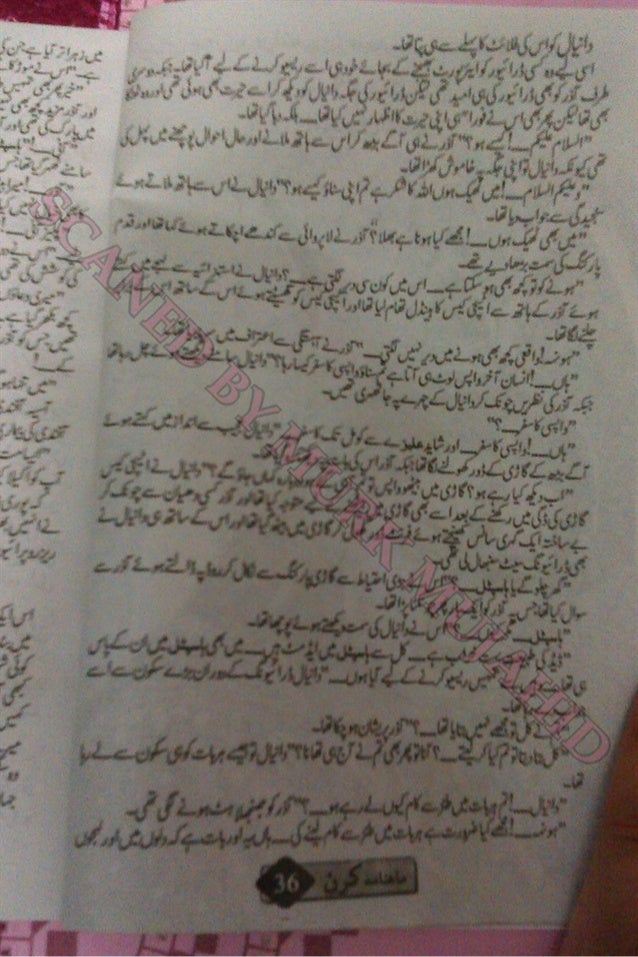 دانیال کو اس کی فلائٹ کا پہلے سے ہی پتا تھا۔
اسی لیے وہ کسی ڈرائیور کو ایئرپورٹ بھیجنے کے بجائے خود ہی اسے ریسیو کرنے کے لیے آ گیا تھا۔ جبکہ دوسری
طرف آذر کو بھی ڈرائیور کی ہی امید تھی لیکن ڈرائیور کی جگہ دانیال کو دیکھ کر اسے حیرت بھی ہوئی تھی اور وہ
تھا لیکن پھر بھی اس نے فوراً ہی اپنی حیرت کا اظہار نہیں کیا تھا۔ بلکہ دبا گیا تھا۔
"السلام علیکم...! کیسے ہو؟" آذر نے ہی آگے بڑھ کر اس سے ہاتھ ملانے اور حال احوال پوچھنے میں پہل کی
تھی کیونکہ دانیال تو اپنی جگہ پہ خاموش کھڑا تھا۔
"وعلیکم السلام...! میں ٹھیک ہوں اللہ کا شکر ہے تم اپنی سناؤ کیسے ہو؟" دانیال نے اس سے ہاتھ ملاتے ہوئے
سنجیدگی سے جواب دیا تھا۔
"میں بھی ٹھیک ہوں...! مجھے کیا ہونا ہے بھلا؟" آذر نے لاپروائی سے کندھے اچکاتے ہوئے کہا تھا اور قدم
پارکنگ کی سمت بڑھا دیے تھے۔
"ہونے کو تو کچھ بھی ہو سکتا ہے... اس میں کون سی دیر لگتی ہے...؟" دانیال نے استہزائیہ سے لہجے میں کہتے
ہوئے آذر کے ہاتھ سے اٹیچی کیس کا ہینڈل تھام لیا تھا اور اٹیچی کیس کو گھسیٹتے ہوئے اس کے ساتھ ہی آگے
چلنے لگا تھا۔
"ہونہہ! واقعی کچھ بھی ہونے میں دیر نہیں لگتی..." آذر نے آہستگی سے اعتراف میں سر
"ہاں...! انسان آخر واپس لوٹ ہی آتا ہے تم سناؤ واپسی کا سفر کیسا رہا؟" دانیال سامنے دیکھتے ہوئے چل رہا تھا
جبکہ آذر کی نظریں چونک کر دانیال کے چہرے پہ جا ٹھہری تھیں۔
"واپسی کا سفر...؟"
"ہاں...! واپسی کا سفر... اور شاید علیزے سے کومل تک کا سفر..." دانیال عجیب سے انداز میں کہتے ہوئے
آگے بڑھ کے گاڑی کے ڈور کھولنے لگا تھا جبکہ آذر اس کی
"اب دیکھ کیا رہے ہو؟ گاڑی میں بیٹھو واپس تو کہاں جاؤ گے؟" دانیال نے اٹیچی کیس
گاڑی کی ڈگی میں رکھنے کے بعد اسے بھی گاڑی میں متوجہ کیا تھا اور آذر کسی دھیان سے چونک کر
بے ساختہ ایک گہری سانس کھینچتے ہوئے فرنٹ گاڑی میں بیٹھ گیا تھا اور اس کے ساتھ ہی دانیال نے
بھی ڈرائیونگ سیٹ سنبھال لی تھی۔
"گھر چلو گے یا ہاسپٹل...؟" اس نے بڑی احتیاط سے گاڑی پارکنگ سے نکال کر روڈ پہ ڈالتے ہوئے آذر سے
سوال کیا تھا جس آذر کو
"ہاسپٹل...؟ اس نے دانیال کی سمت دیکھتے ہوئے پوچھا تھا۔
"ڈیڈ کی خراب ہے... کل سے ہاسپٹل میں ایڈمٹ ہیں... میں بھی ہاسپٹل میں ان کے پاس
ہی تھا تمہیں ریسیو کرنے کے لیے آیا ہوں..." دانیال ڈرائیونگ کے دوران بڑے سکون سے اسے
تھا۔
نے کل تو مجھے نہیں بتایا تھا...؟" آذر پریشان ہو چکا تھا۔
"کل بتا دیتا تو تم کیا کر لیتے...؟ آنا تو پھر بھی تم نے آج ہی تھا نا؟" دانیال تو جیسے ہر بات کو ہی سکون سے لے رہا
تھا۔
"دانیال...! تم ہر بات میں طنز سے کام کیوں لے رہے ہو...؟" آذر کو جھنجھلاہٹ ہونے لگی تھی۔
"ہونہہ...! مجھے کیا ضرورت ہے ہر بات میں طنز سے کام لینے کی... ہاں یہ اور بات ہے کہ دلوں میں اور لہجوں
ماہنامہ کرن 36
SCANED BY MURK MUJAHID